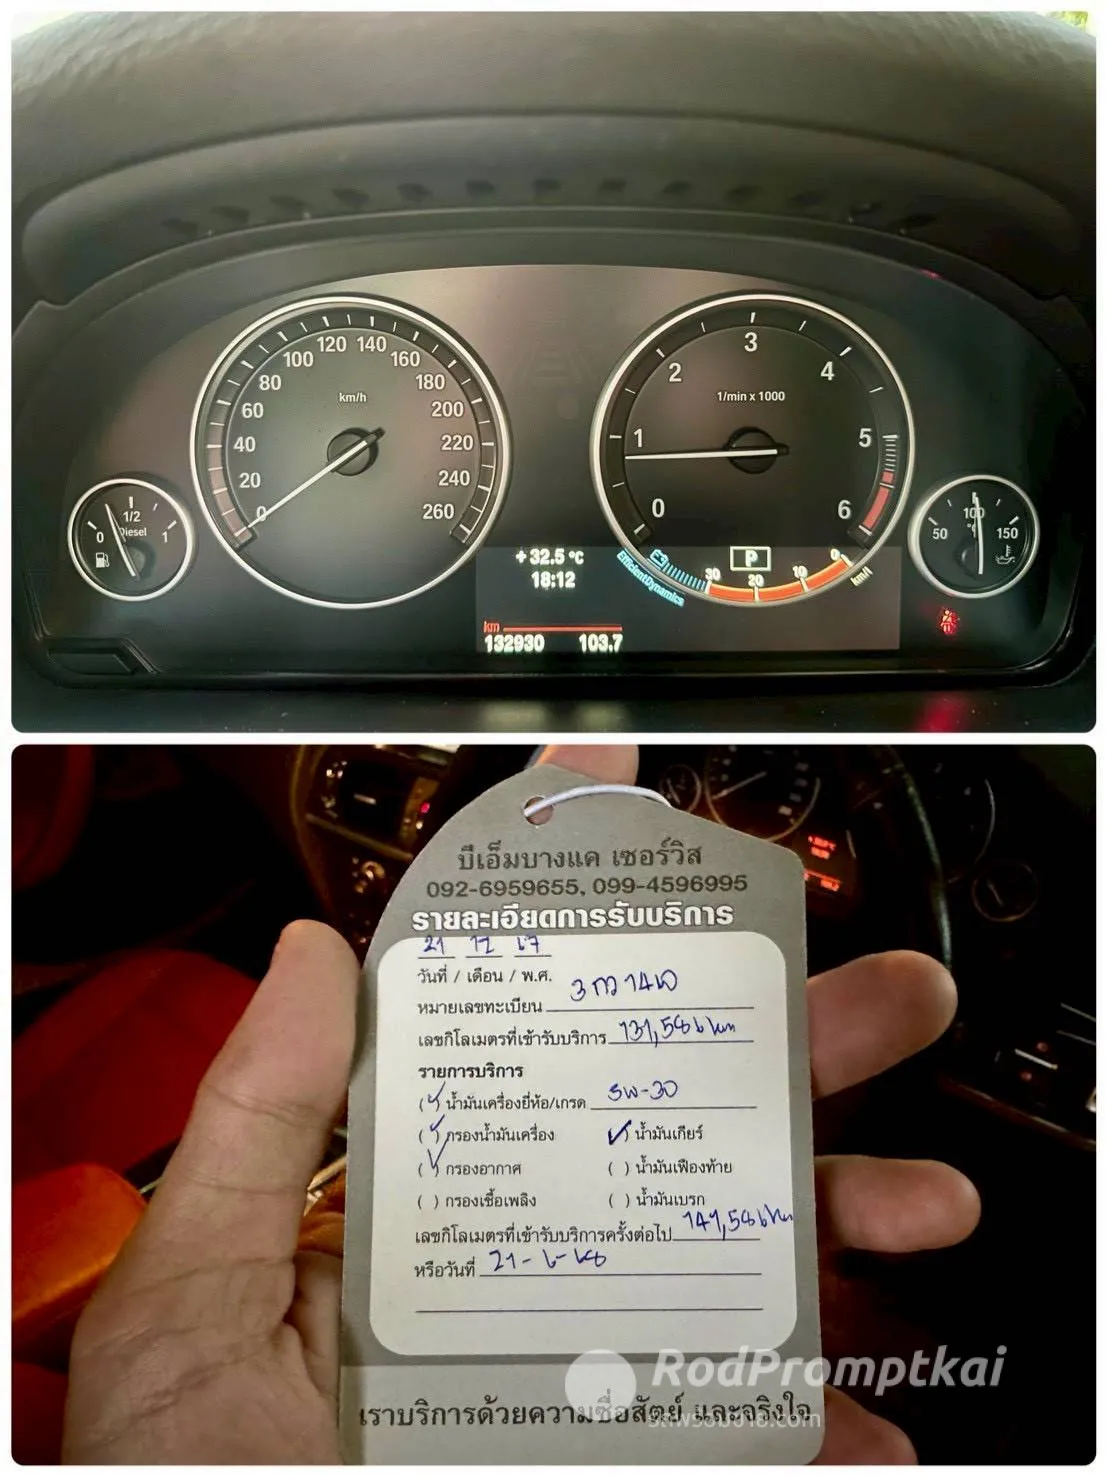 0 20 40 60 80 100 120 140 160 180 200 220 240 260
km/h
0 1 2 3 4 5 6
1/min x 1000
0 1/2 1
Diesel
50 100 150
°C
+32.5 °C
18:12
EfficientDynamics
P
30 20 10 0
km/l
km
132930 103.7
บีเอ็มบางแค เซอร์วิส
092-6959655, 099-4596995
รายละเอียดการรับบริการ
21 12 67
วันที่ / เดือน / พ.ศ.
หมายเลขทะเบียน
เลขกิโลเมตรที่เข้ารับบริการ 131,586 km
รายการบริการ
( ✓ ) น้ำมันเครื่องยี่ห้อ/เกรด 5W-30
( ✓ ) กรองน้ำมันเครื่อง ( ✓ ) น้ำมันเกียร์
( ✓ ) กรองอากาศ ( ) น้ำมันเฟืองท้าย
( ) กรองเชื้อเพลิง ( ) น้ำมันเบรก
เลขกิโลเมตรที่เข้ารับบริการครั้งต่อไป 141,586 km
หรือวันที่ 21-6-68
เราบริการด้วยความซื่อสัตย์ และจริงใจ
RodPromptkai